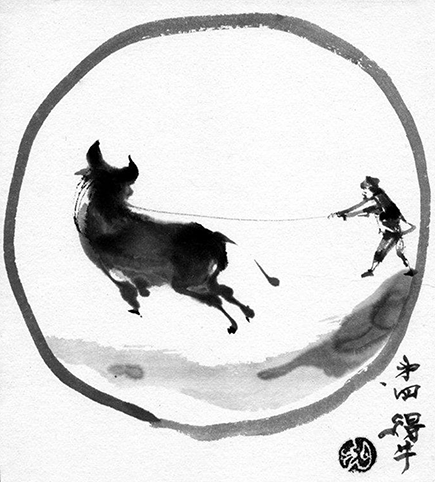 第四
得牛